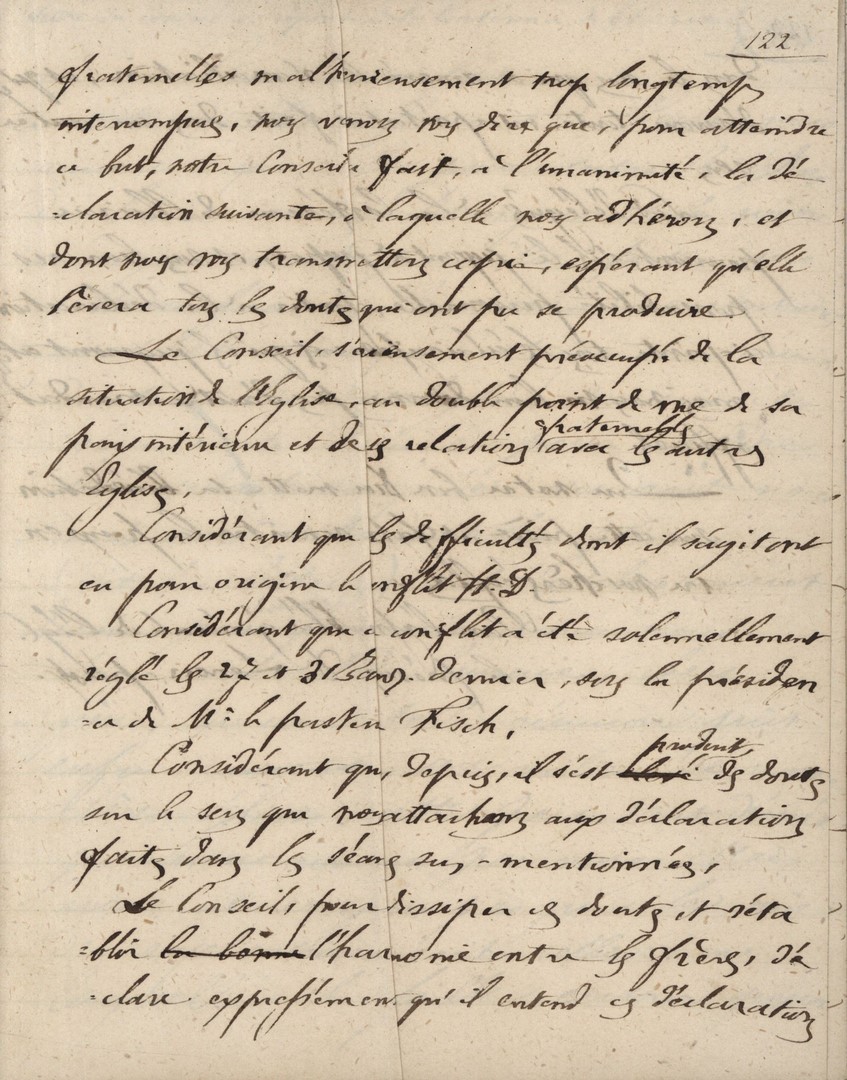 122
fraternelles malheureusement trop longtemps
interrompues, nous venons vous dire que, pour atteindre
ce but, notre Conseil a fait, à l'unanimité, la dé
=claration suivante, à laquelle nous adhérons, et
dont nous vous transmettons copie, espérant qu'elle
lèvera tous les doutes qui ont pu se produire.
Le Conseil, sérieusement préoccupé de la
situation de l'Eglise, au double point de vue de sa
paix intérieure et de ses relations fraternelles avec les autres
Eglises,
Considérant que les difficultés dont il s'agit ont
eu pour origine le conflit H. D.
Considérant que ce conflit a été solennellement
réglé les 27 et 31 Janv. dernier, sous la présiden
=ce de Mr. le pasteur Fisch,
Considérant que, depuis, il s'est élevé produit, des doutes
sur le sens que nous attachons aux déclarations
faites dans les séances sus-mentionnées,
Le Conseil, pour dissiper ces doutes, et réta
=blir la bonne l'harmonie entre les frères, dé
=clare expressément qu'il entend ces déclarations